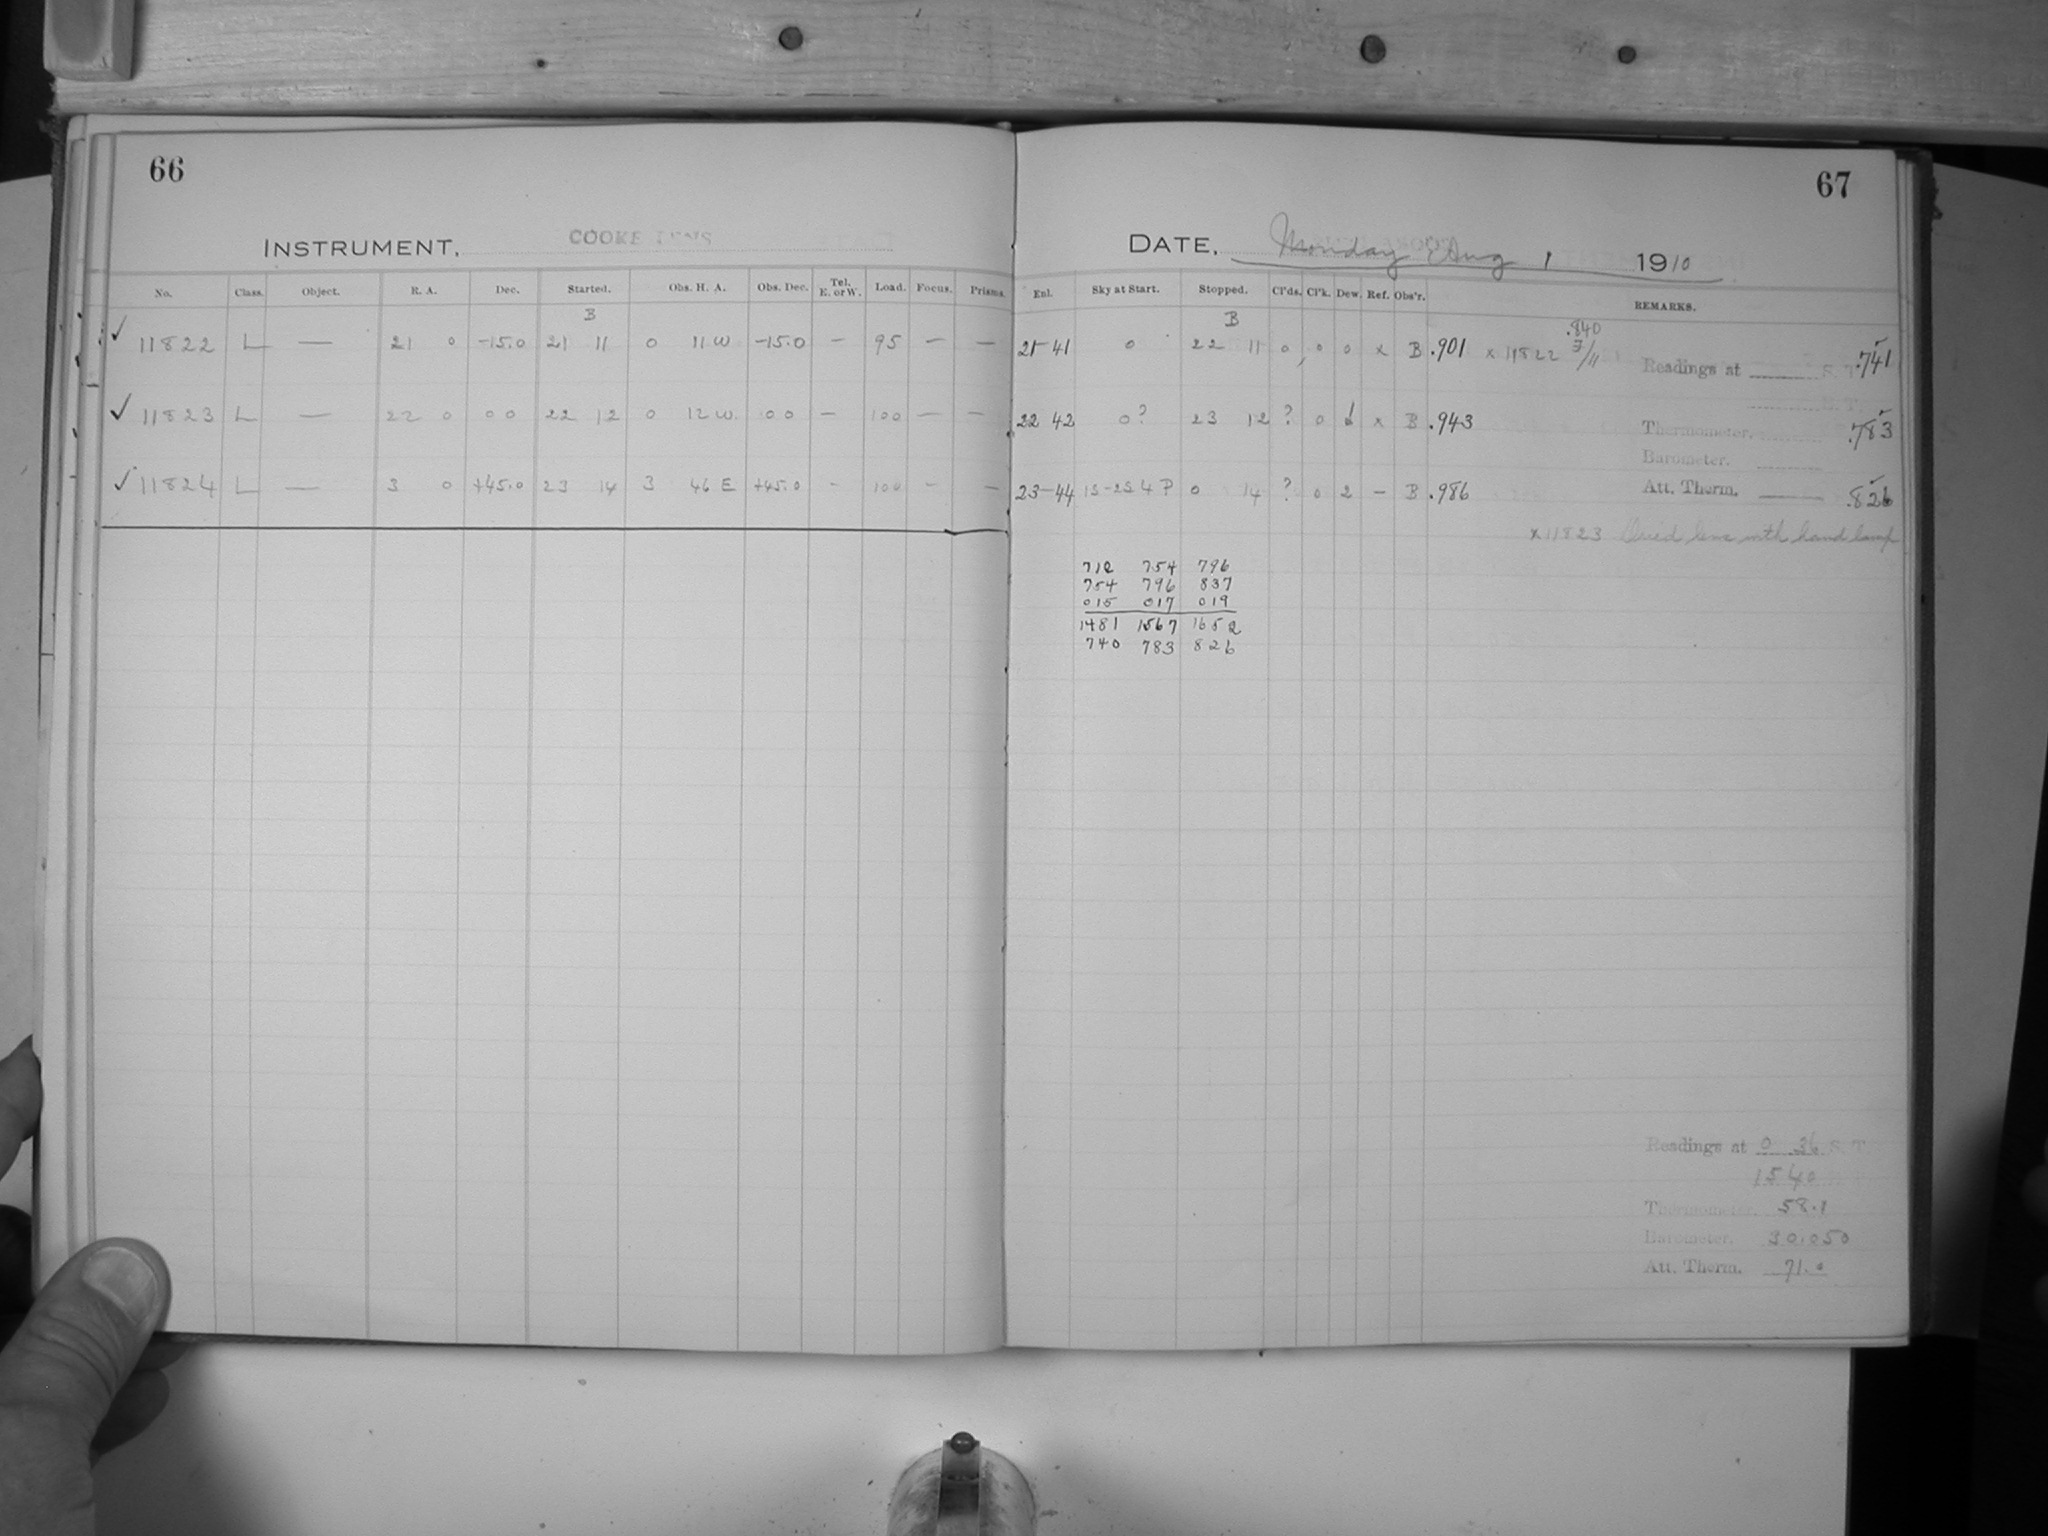 66
INSTRUMENT, COOKE LENS
No. Class. Object. R. A. Dec. Started. Obs. H. A. Obs. Dec. Tel. E. or W. Load. Focus. Prisms.
B
✓ 11822 L — 21 0 -15.0 21 11 0 11 W -15.0 — 95 — —
✓ 11823 L — 22 0 0 0 22 12 0 12 W. 0 0 — 100 — —
✓ 11824 L — 3 0 +45.0 23 14 3 46 E +45.0 - 100 - —
67
DATE, Monday Aug 1 1910
Enl. Sky at Start. Stopped. Cl'ds. Cl'k. Dew. Ref. Obs'r. REMARKS.
B .840
21-41 0 22 11 0 0 0 x B .901 x 11822 3/11 .741
Readings at S. T.
S. T.
22 42 0? 23 12 ? 0 x B .943 .783
Thermometer.
Barometer.
23-44 1S-2S 4 P 0 14 ? 0 2 - B .986 .826
Att. Therm.
x 11823 Dried lens with hand lamp
712 754 796
754 796 837
015 017 019
1481 1567 1652
740 783 826
Readings at 0 36 S. T.
15 40
Thermometer. 58.1
Barometer. 30.050
Att. Therm. 71.0